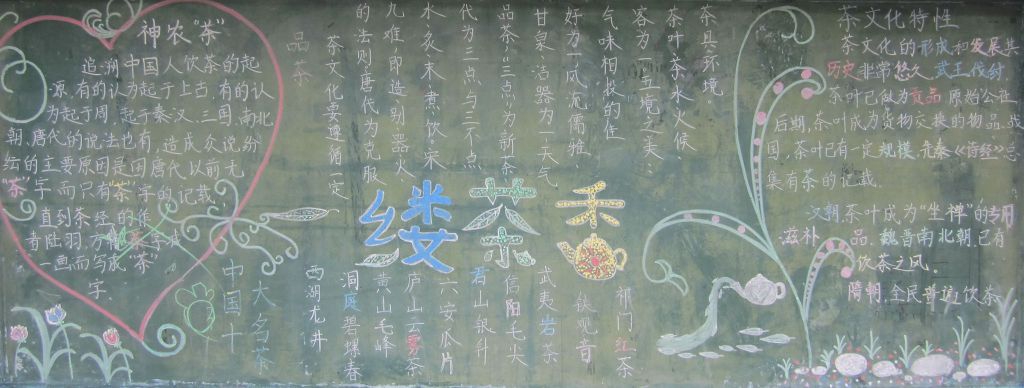 神农“茶”
追溯中国人饮茶的起
源,有的认为起于上古,有的认
为起于周,起于秦汉、三国、南北
朝、唐代的说法也有,造成众说纷
纭的主要原因是因唐代以前无
“茶”字,而只有“荼”字的记载,
直到茶经的作
者陆羽,方将“荼”字减
一画而写成“茶”
字。
品茶
茶文化要遵循一定
的法则唐代为克服
九难,即造、别、器、火、
水、炙、末、煮、饮。宋
代为三点与三不点
品茶,“三点”为新茶、
甘泉、洁器为一,天气
好为一,风流儒雅、
气味相投的佳
客为一。五境之美:
茶叶、茶水、火候、
茶具、环境。
一缕茶香
中国十
大名茶
西湖龙井
洞庭碧螺春
黄山毛峰
庐山云雾茶
六安瓜片
君山银针
信阳毛尖
武夷岩茶
铁观音
祁门红茶
茶文化特性
茶文化的形成和发展其
历史非常悠久。武王伐纣,
茶叶已做为贡品。原始公社
后期,茶叶成为货物交换的物品。战
国,茶叶已有一定规模。先秦《诗经》总
集有茶的记载。
汉朝,茶叶成为“坐禅”的专用
滋补品。魏晋南北朝,已有
饮茶之风。
隋朝,全民普遍饮茶